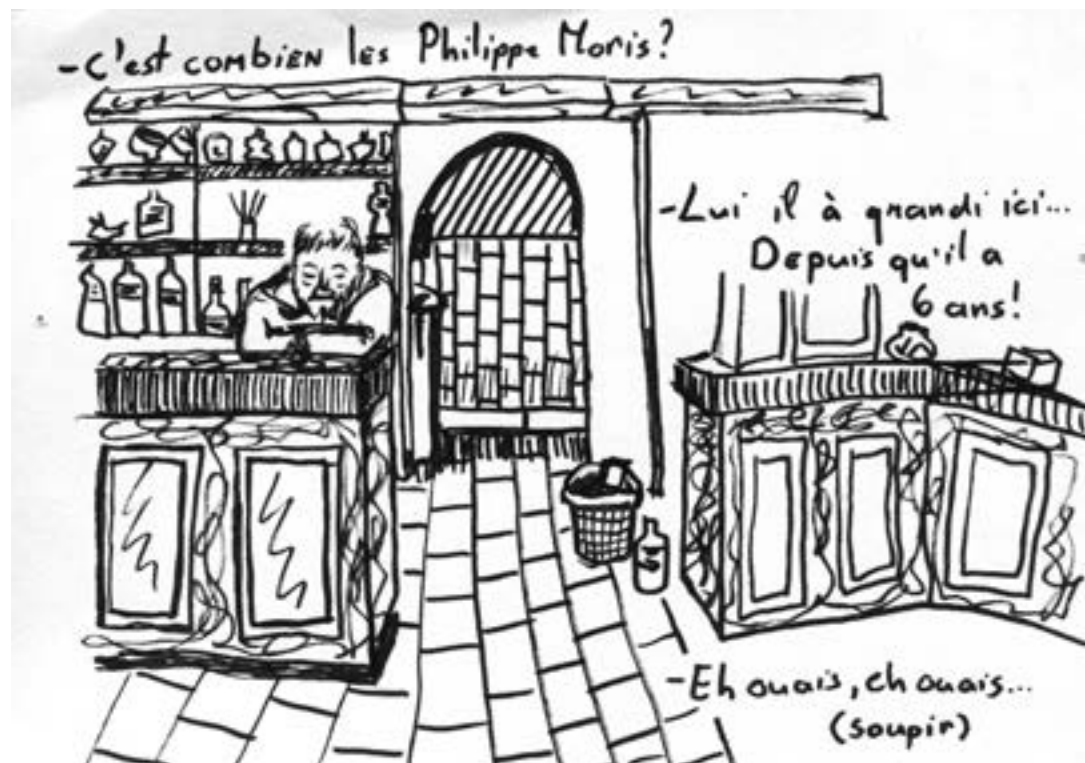 -C'est combien les Philippe Moris?
-Lui il à grandi ici...
Depuis qu'il a
6 ans!
-Eh ouais, eh ouais...
(soupir)